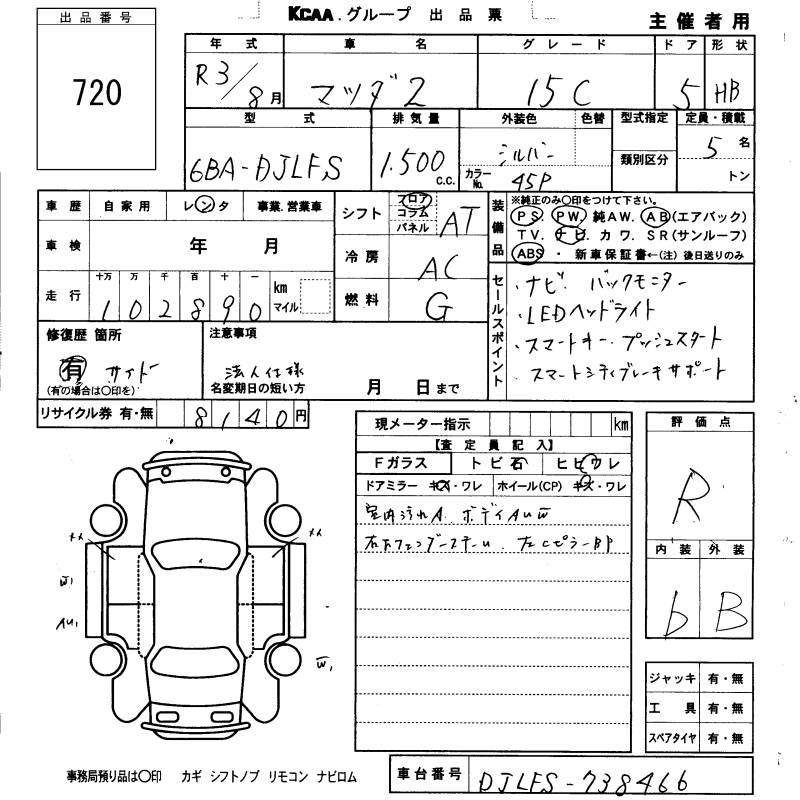 出品番号
720
KCAA.グループ 出品票
主催者用
年式 車名 グレード ドア 形状
R3/8月 マツダ2 15C 5 HB
型式 排気量 外装色 色替 型式指定 定員・積載
6BA-DJLFS 1.500 C.C. シルバー カラーNo. 45P 類別区分 5名 トン
車歴 自家用 レンタ 事業.営業車
車検 年 月
十万 万 千 百 十 一
走行 1 0 2 8 9 0 km マイル
シフト フロア コラム パネル AT
冷房 AC
燃料 G
装備品
※純正のみ○印をつけて下さい。
PS PW 純AW. AB(エアバック)
TV. ナビ. カワ. SR(サンルーフ)
ABS ・ 新車保証書←(注)後日送りのみ
セールスポイント
・ナビ バックモニター
・LEDヘッドライト
・スマートキー・プッシュスタート
スマートシティブレーキサポート
修復歴 箇所
有 サイド
(有の場合は○印を)
注意事項
法人仕様
名変期日の短い方 月 日まで
リサイクル券 有・無 8140円
現メーター指示 km
【査定員記入】
Fガラス トビ石 ヒビワレ
ドアミラー キズ・ワレ ホイール(CP) キズ・ワレ
室内汚れA. ボディAUW
左CピラーBP
評価点
R
内装 外装
b B
メメ メメ
W1
AU1
W1
ジャッキ 有・無
工具 有・無
スペアタイヤ 有・無
事務局預り品は○印 カギ シフトノブ リモコン ナビロム
車台番号 DJLFS-738466